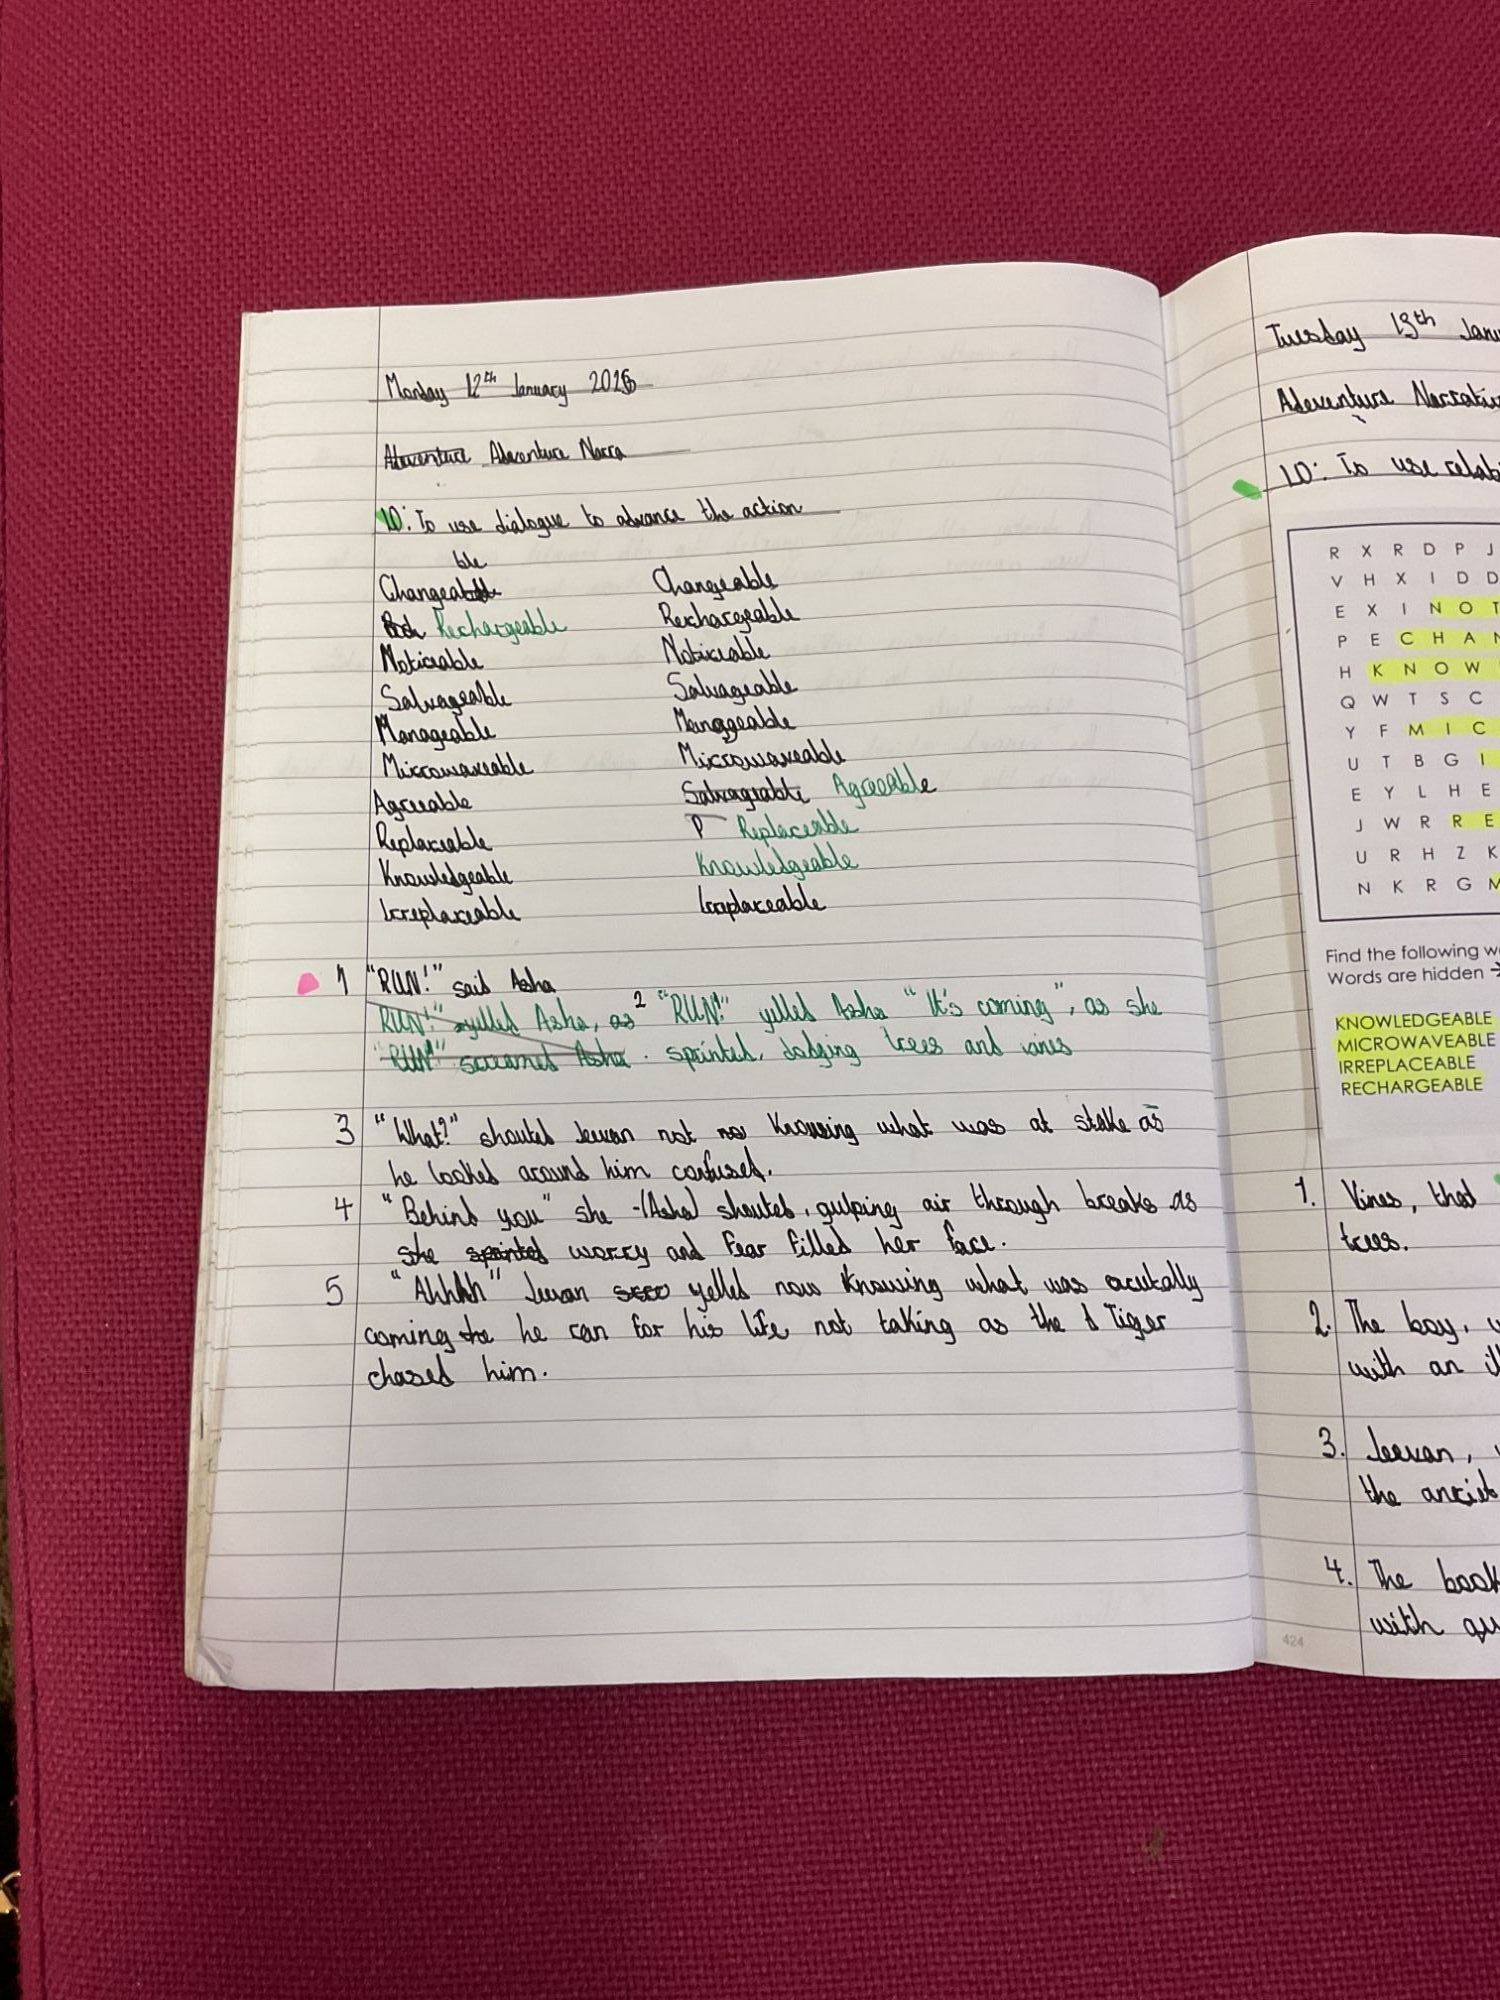 Monday 12th January 2026
Adeventure Adeventure Narra
LO: To use dialogue to advance the action
ble
Changeable Changeable
Rech Rechargeable Rechargeable
Noticeable Noticeable
Salvageable Salvageable
Manageable Manageable
Microwaveable Microwaveable
Agreeable Salvageable Agreeable
Replaceable P Replaceable
Knowledgeable Knowledgeable
Irreplaceable Irreplaceable
1 "RUN!" said Asha
RUN!" yelled Asha, as 2 "RUN!" yelled Asha "It's coming", as she
"RUN!" screamed Asha. sprinted, dodging trees and vines
3 "What?" shouted Jeevan not no Knowing what was at stake as
he looked around him confused.
4 "Behind you" she -(Asha) shouted, gulping air through breaks as
she sprinted worry and fear filled her face.
5 "Ahhhh" Jeevan yelled now Knowing what was acutally
coming he can for his life, not taking as the Tiger
chased him.
Tuesday 13th Janu
Adeventure Narrativ
LO: To use relati
R X R D P J
V H X I D D
E X I N O T
P E C H A N
H K N O W
Q W T S C
Y F M I C
U T B G I
E Y L H E
J W R R E
U R H Z K
N K R G M
Find the following w
Words are hidden →
KNOWLEDGEABLE
MICROWAVEABLE
IRREPLACEABLE
RECHARGEABLE
1. Vines, that
trees.
2. The boy, w
with an ill
3. Jeevan, w
the
4. The book
with qu
424